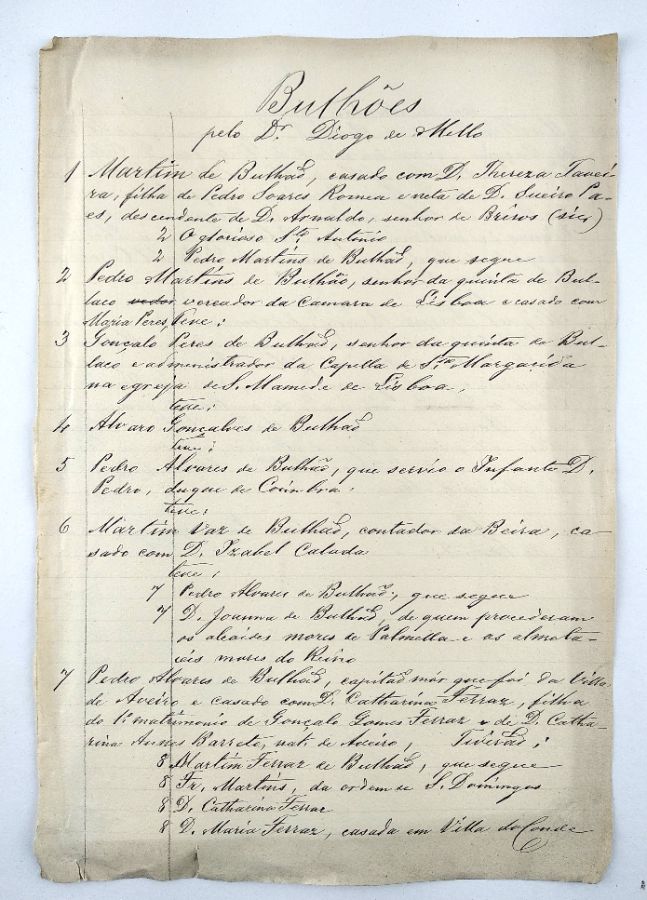 Bulhões
pelo Dr. Diogo de Mello
1 Martim de Bulhaõ, casado com D. Thereza Tavei-
ra, filha de Pedro Soares Romea e neta de D. Sueiro Pa-
es, descendente de D. Arnaldo, senhor de Briros (sic)
2 O glorioso Sto. Antonio
2 Pedro Martins de Bulhaõ, que segue
2 Pedro Martins de Bulhão, senhor da quinta de Bul-
laco vereador da Camara de Lisboa e casado com
Maria Peres, teve:
3 Gonçalo Peres de Bulhaõ, senhor da quinta do Bul-
laco e administrador da Capella de Sta. Margarida
na egreja de S. Mamede de Lisboa,
teve:
4 Alvaro Gonçalves de Bulhaõ
teve:
5 Pedro Alvares de Bulhaõ, que servio o Infante D.
Pedro, duque de Coimbra.
teve:
6 Martim Vaz de Bulhaõ, contador da Beira, ca-
sado com D. Izabel Calada
teve:
7 Pedro Alvares de Bulhaõ, que segue
7 D. Joanna de Bulhaõ, de quem procederam
os alcaides mores de Palmella e os almota-
céis mores do Reino
7 Pedro Alvares de Bulhaõ, capitaõ mór que foi da Villa
de Aveiro e casado com D. Catharina Ferraz, filha
do 1º matrimonio de Gonçalo Gomes Ferraz e de D. Catha-
rina Annes Barreto, nat. de Aveiro, Tiveraõ:
8 Martim Ferraz de Bulhaõ, que segue
8 Fr. Martins, da ordem de S. Domingos
8 D. Catharina Ferraz
8 D. Maria Ferraz, casada em Villa do Conde